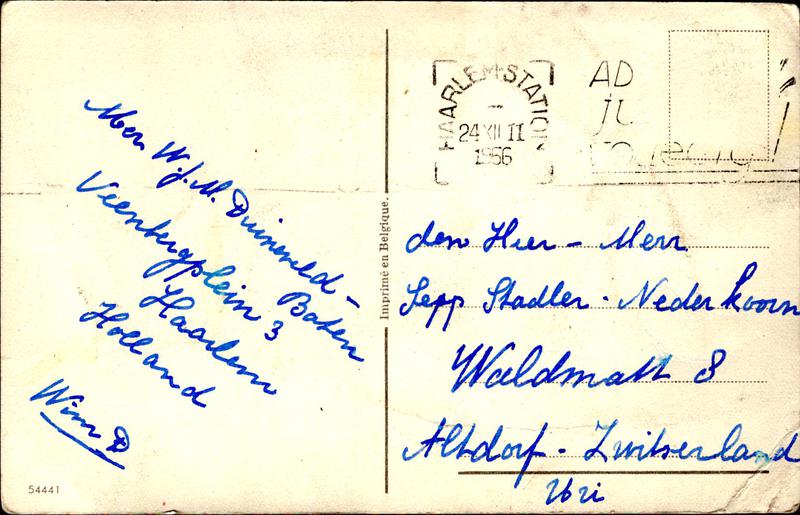 Mevr W.J.M. Duineveld -
Baten
Veenbergplein 3
Haarlem
Holland
Wim D
54441
Imprimé en Belgique.
HAARLEM-STATION
24 XII 11
1956
AD
den Heer - Mevr
Sepp Stadler - Nederkoorn
Waldmatt 8
Altdorf - Zwitserland
Uri